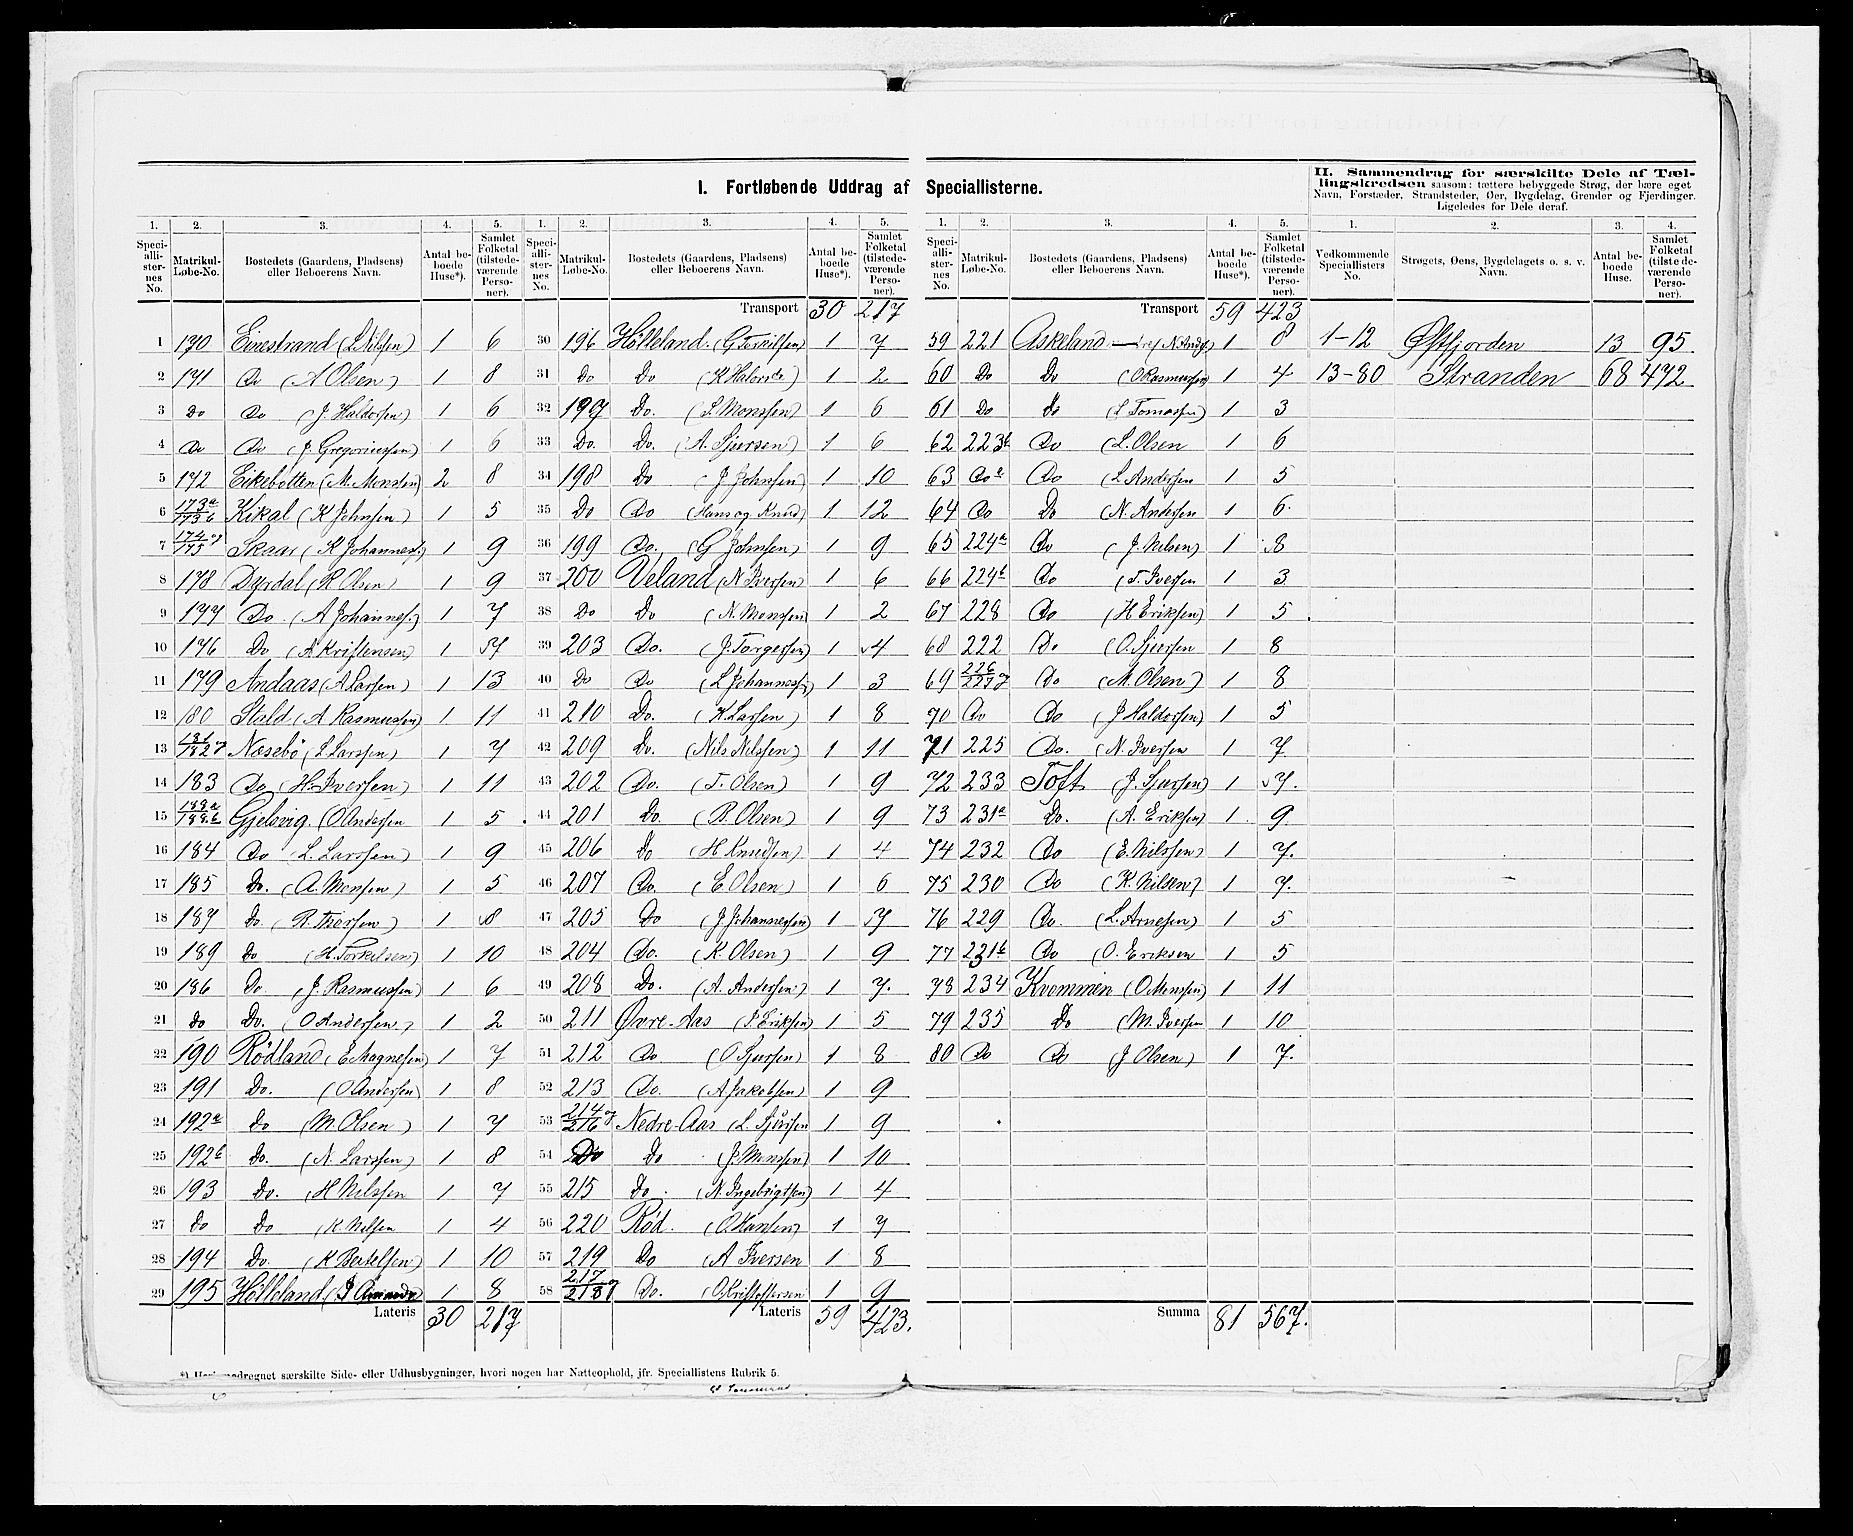 I. Fortløbende Uddrag af Speciallisterne.
1. 2. 3. 4. 5.
Speciallisternes No. Matrikul-Løbe-No. Bostedets (Gaardens, Pladsens) eller Beboerens Navn. Antal beboede Huse*). Samlet Folketal (tilstedeværende Personer).
1 170 Einestrand (L Nilssen) 1 6
2 171 Do (A Olsen) 1 8
3 Do Do (J. Haldorsen) 1 6
4 Do Do (J. Gregoriussen) 1 6
5 172 Eikebotten (M. Monsen) 2 8
6 173a/173b Kikal (K Johnsen) 1 5
7 174 og 175 Skaar (K Johannes.) 1 9
8 178 Dyrdal (K Olsen) 1 9
9 177 Do. (A Johannes.) 1 7
10 176 Do (A Kristensen) 1 7
11 179 Andaas (A Larsen) 1 13
12 180 Stald (A Rasmussen) 1 11
13 181/182 Næsebø (L Larssen) 1 7
14 183 Do (H. Iversen) 1 11
15 188a/188b Gjelsvig (O Andersen 1 5
16 184 Do (L. Larssen) 1 9
17 185 Do. (A. Monsen) 1 5
18 187 Do (B. Iversen) 1 8
19 189 Do (H. Torkelsen) 1 10
20 186 Do. (J. Rasmussen) 1 6
21 Do Do. (O Andersen) 1 2
22 190 Rödland (E. Magnesen) 1 7
23 191 Do. (O Andersen) 1 8
24 192a Do (M Olsen) 1 7
25 192b Do. (N. Larssen) 1 8
26 193 Do. (H Nilssen 1 7
27 Do Do (K Nilsen 1 4
28 194 Do. (K Bertelsen) 1 10
29 195 Hölleland 1 8
Lateris 30 217
1. 2. 3. 4. 5.
Speciallisternes No. Matrikul-Løbe-No. Bostedets (Gaardens, Pladsens) eller Beboerens Navn. Antal beboede Huse*). Samlet Folketal (tilstedeværende Personer).
Transport 30 217
30 196 Hölleland. (G Torkilsen) 1 7
31 Do Do (K Halvors) 1 2
32 197 Do. (S. Monssen) 1 6
33 Do. Do. (A. Sjursen) 1 6
34 198 Do (J Johnsen) 1 10
35 Do Do (Hans og Knud) 1 12
36 199 Do. (G Johnsen) 1 9
37 200 Veland (N Iversen) 1 6
38 Do Do (N. Monsen) 1 2
39 203 Do. (J. Torgersen) 1 4
40 Do Do (L Johannessen) 1 3
41 210 Do. (K. Larsen) 1 8
42 209 Do. (Nils Nilssen) 1 11
43 202 Do. (T. Olsen) 1 9
44 201 Do. (B. Olsen) 1 9
45 206 Do (H Knudsen) 1 4
46 207 Do. (E Olsen) 1 6
47 205 Do (J Johannessen) 1 7
48 204 Do. (K. Olsen) 1 9
49 208 Do. (A. Andersen) 1 7.
50 211 Øvre-Aas (P. Eriksen) 1 5
51 212 Do (O Sjursen) 1 8
52 213 Do. (A Jakobsen) 1 9
53 214 og 216 Nedre-Aas (L. Sjursen 1 9
54 Do Do (J. Monssen) 1 10
55 215 Do. (N. Ingebrigtsen) 1 4
56 220 Rød. (O. Hansen) 1 7
57 219 Do (A Iversen 1 8
58 217/218 Do. (O. Kristoffersen 1 9
Lateris 59 423.
1. 2. 3. 4. 5.
Speciallisternes No. Matrikul-Løbe-No. Bostedets (Gaardens, Pladsens) eller Beboerens Navn. Antal beboede Huse*). Samlet Folketal (tilstedeværende Personer).
Transport 59 423
59 221 Askeland 1 8
60 Do Do (O Rasmussen) 1 4
61 Do do (L Tomassen) 1 3
62 223b Do (L. Olsen 1 6
63 Do a Do (L Andersen 1 5
64 Do Do (N. Andersen 1 6.
65 224a Do (J. Nilsen) 1 8
66 224b Do (T. Iversen 1 3
67 228 Do (H Eriksen) 1 5
68 222 Do (O. Sjursen 1 8
69 226/227 Do (M. Olsen) 1 8
70 Do Do (J Haldorsen) 1 5
71 225 Do. (N. Iversen 1 7
72 233 Toft (J. Sjursen) 1 7.
73 231a Do. (A. Eriksen) 1 9
74 232 Do (E. Nilssen) 1 7.
75 230 Do (K. Nilsen) 1 7.
76 229 Do. (L. Arnesen) 1 5
77 231b Do (O. Eriksen 1 5
78 234 Kvommen (O Monsen) 1 11
79 235 Do (M. Iversen 1 10
80 Do Do (J Olsen) 1 7.
Summa 81 567.
II. Sammendrag for særskilte Dele af Tællingskredsen saasom: tættere bebyggede Strøg, der bære eget Navn, Forstæder, Strandsteder, Øer, Bygdelag, Grender og Fjerdinger. Ligeledes for Dele deraf.
1. 2. 3. 4.
Vedkommende Speciallisters No. Strøgets, Øens, Bygdelagets o. s. v. Navn. Antal beboede Huse. Samlet Folketal (tilstedeværende Personer).
1-12 Østfjorden 13 95
13-80 Stranden 68 472
regnet særskilte Side- eller Udhusbygninger, hvori nogen har Natteophold, jfr. Speciallistens Rubrik 5.